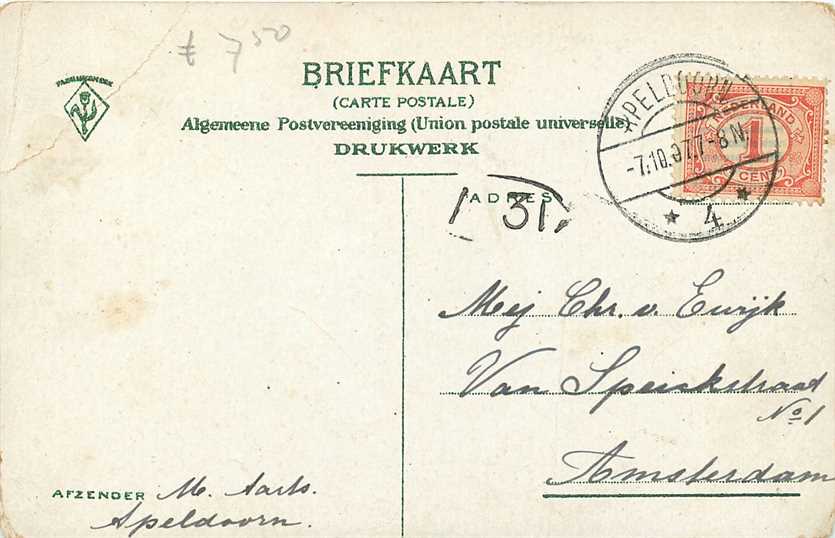 ƒ 7 50
FABRIEKSMERK
BRIEFKAART
(CARTE POSTALE)
Algemeene Postvereeniging (Union postale universelle)
DRUKWERK
APELDOORN
-7.10.07.7-8N
4
NEDERLAND
1
CENT
ADRES
31
Mej Chr. v. Ewijk
Van Speickstraat
No 1
Amsterdam
AFZENDER M. Aarts.
Apeldoorn.